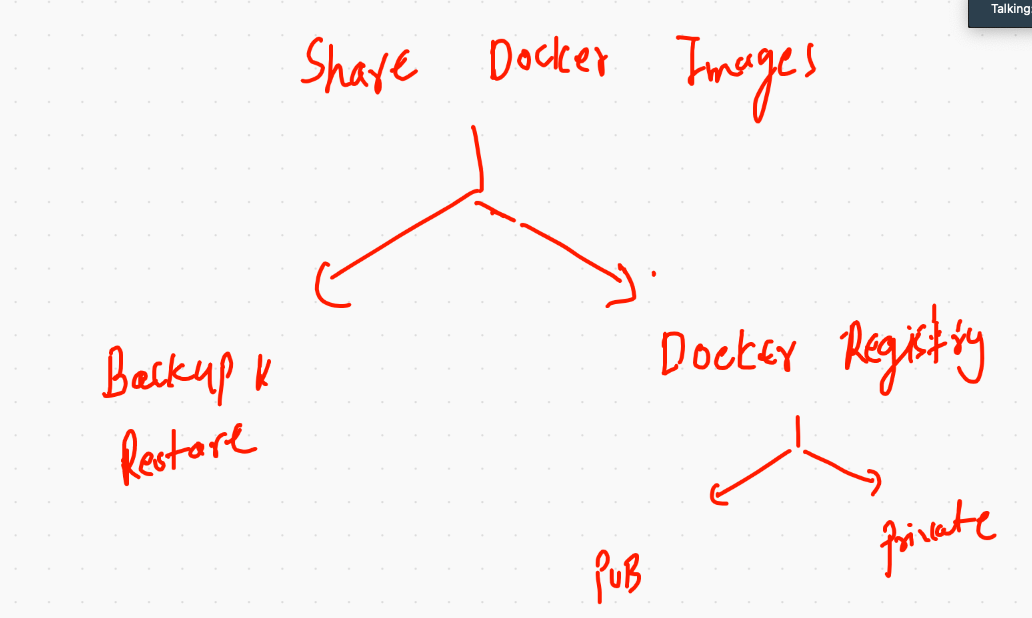 Talking:
Share Docker Images
Backup &
Restore
Docker Registry
Private
PUB